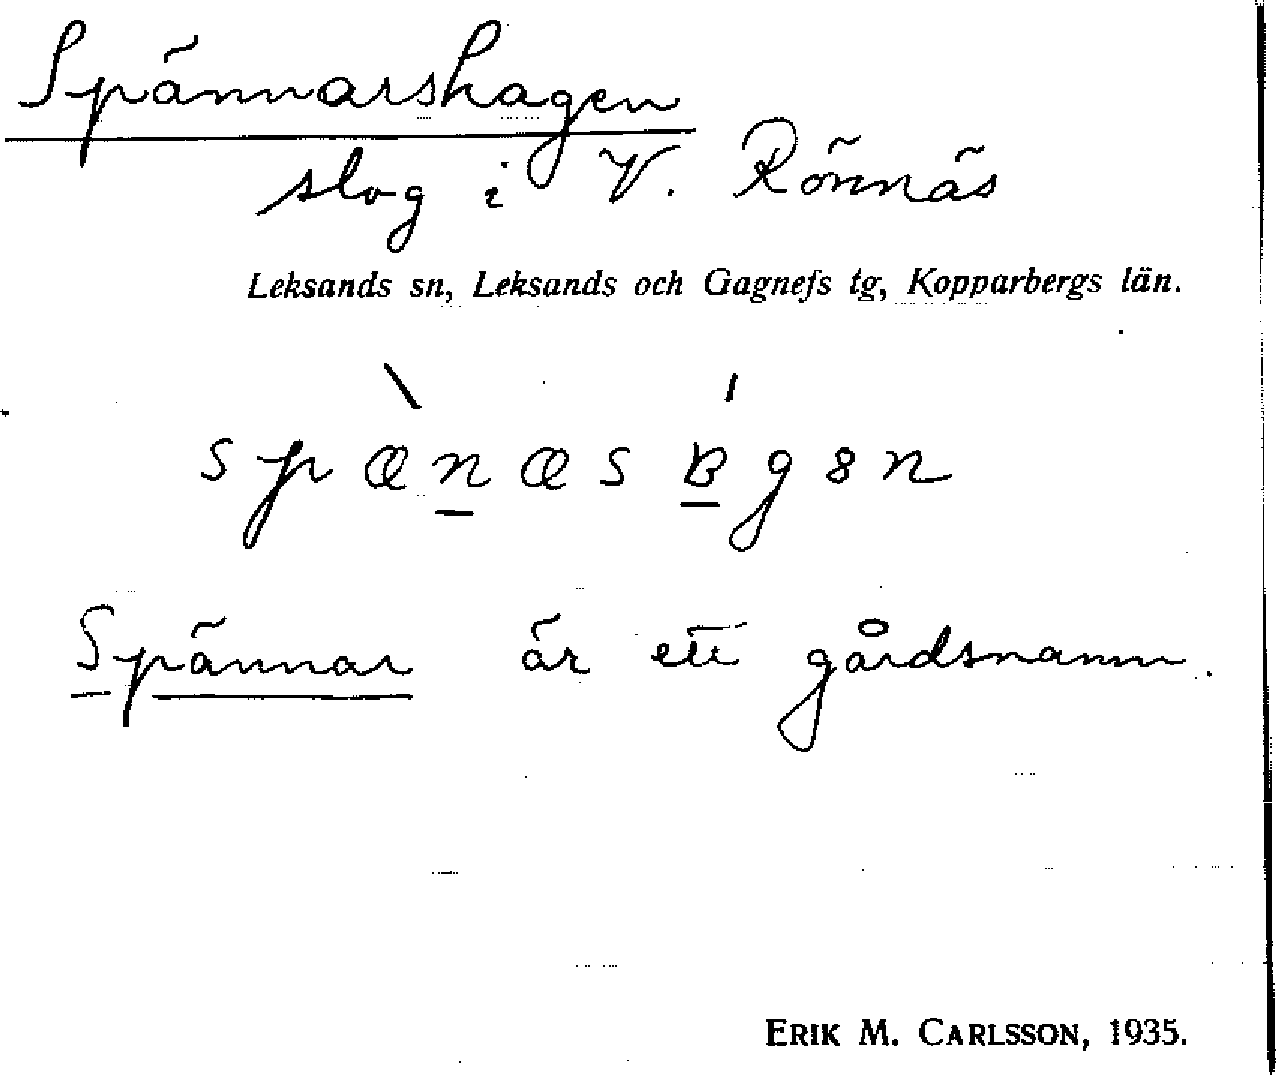 Spännarshagen
slog i V. Rönnäs
Leksands sn, Leksands och Gagnefs tg, Kopparbergs län.
Spännar är ett gårdsnamn.
ERIK M. CARLSSON, 1935.